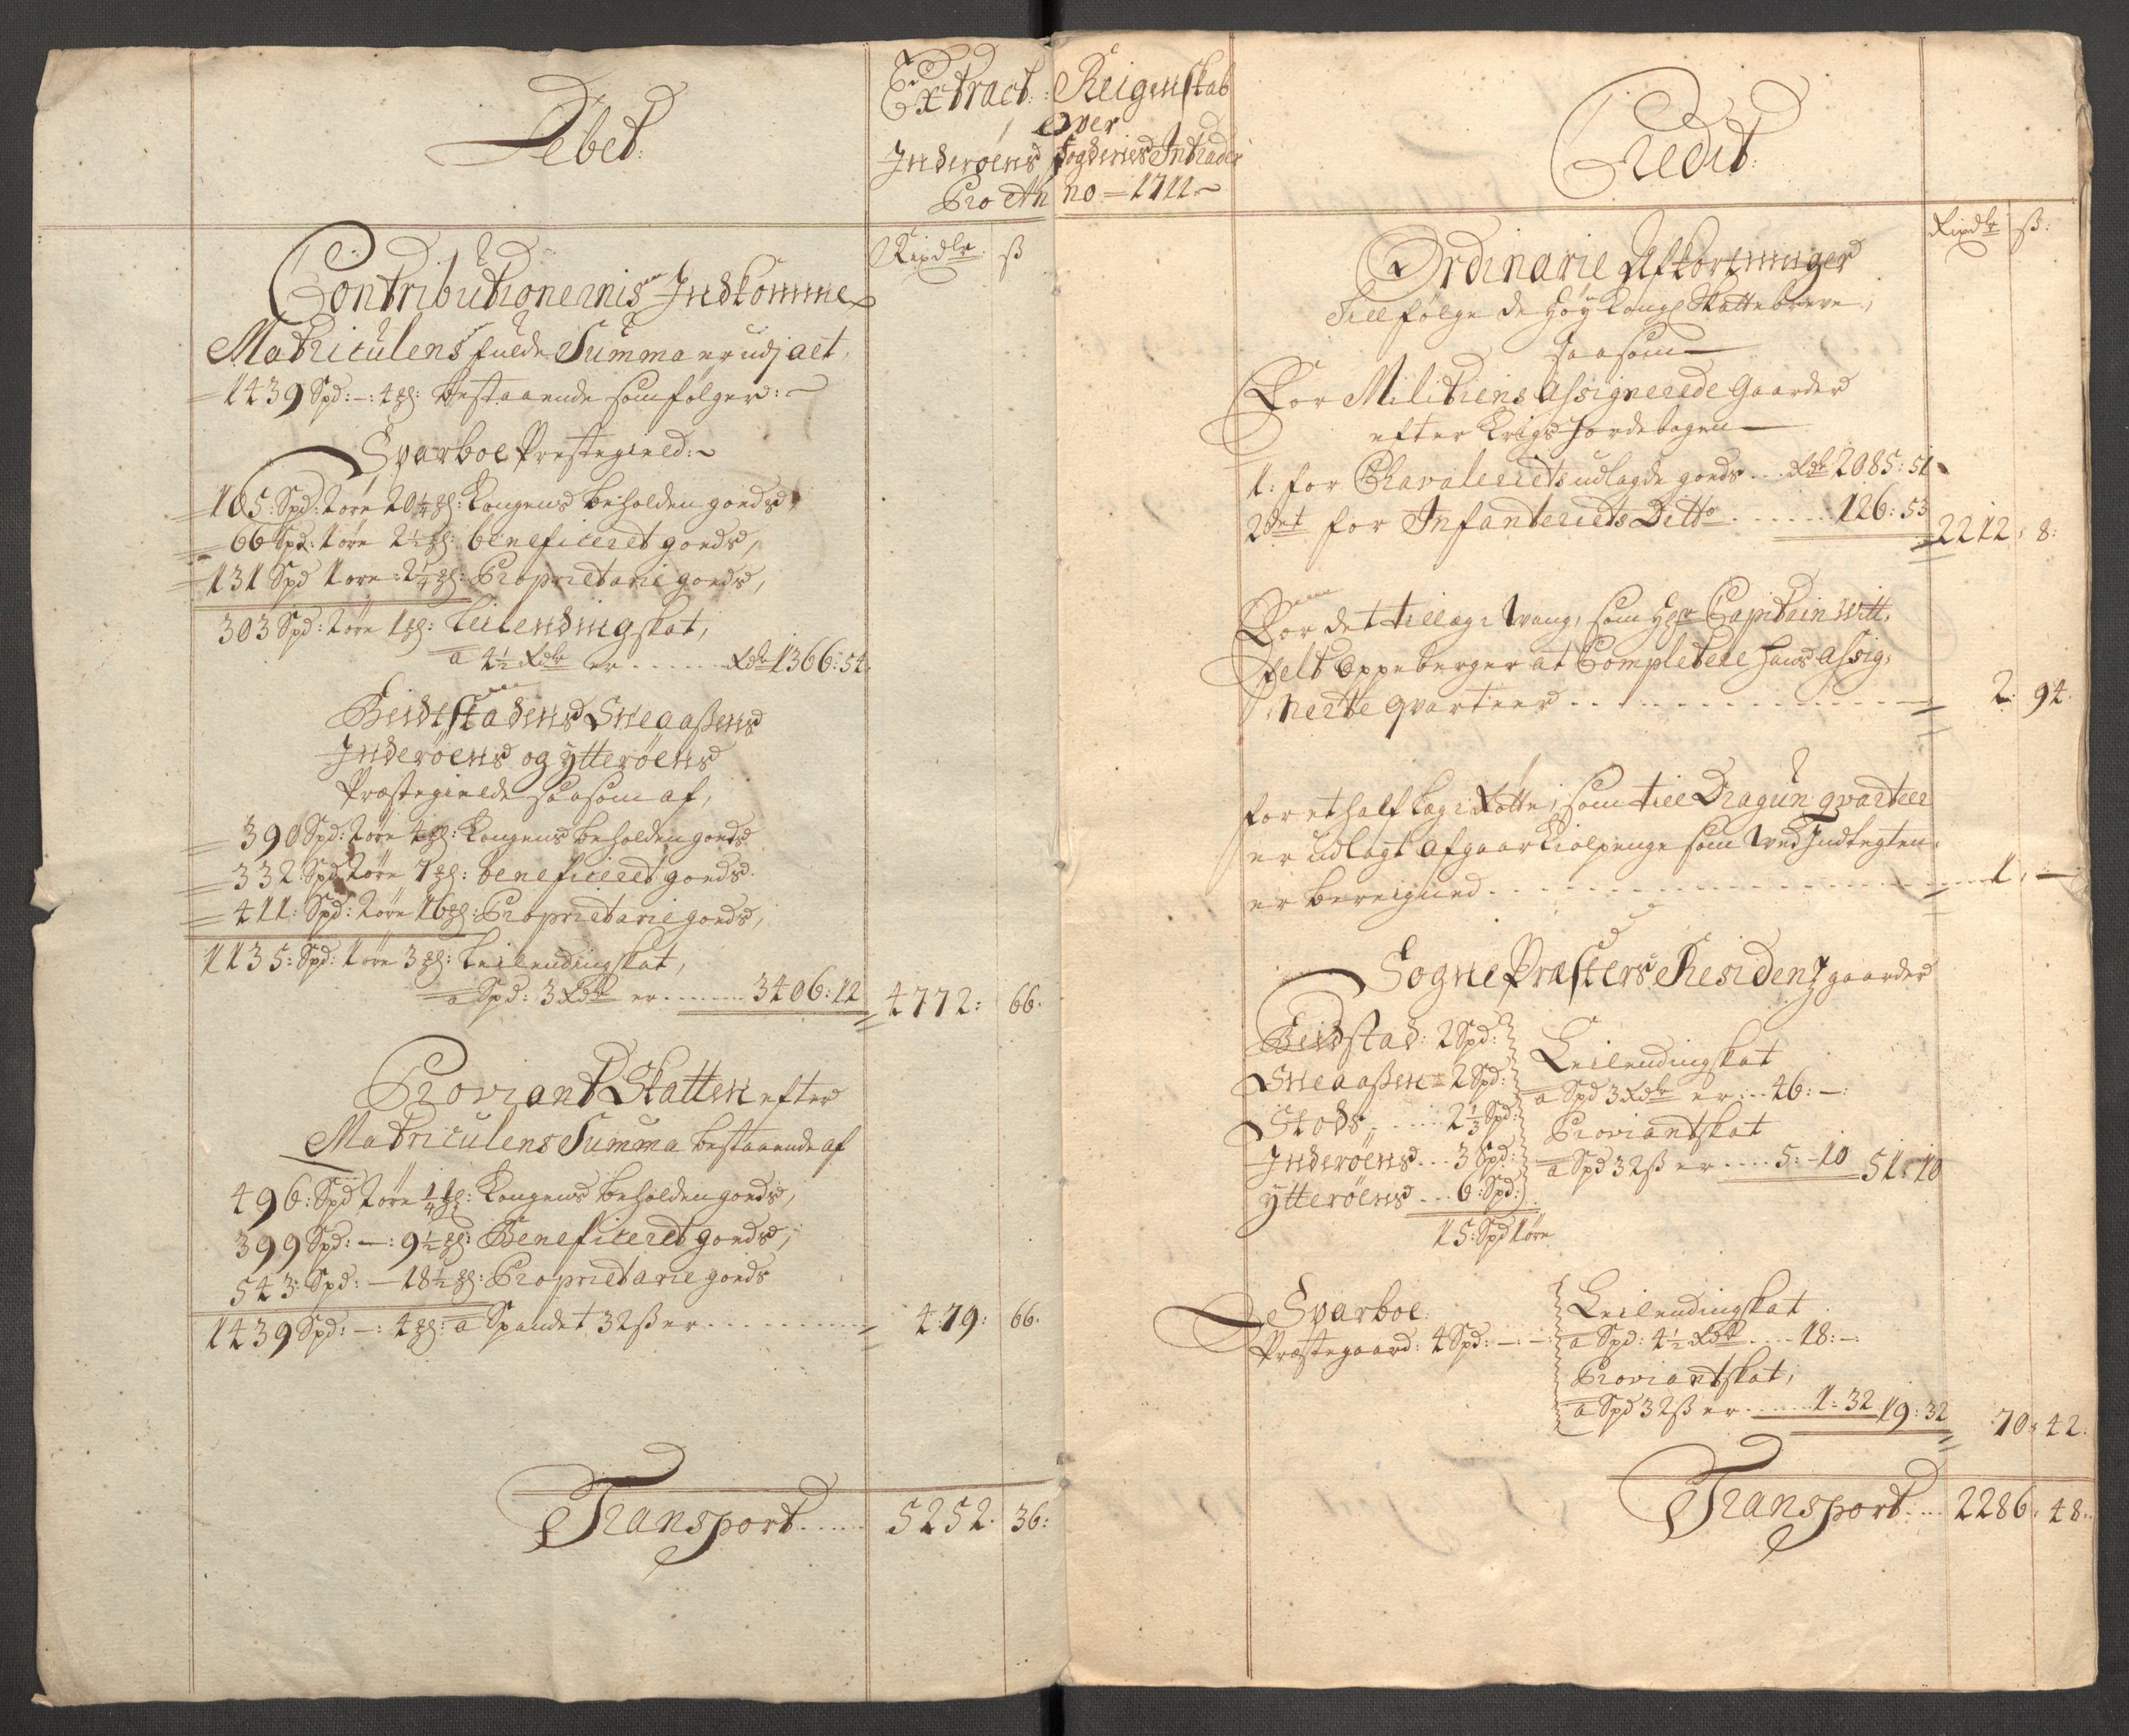 Debet:
Extract: Reigenskab
over
Inderøens fogderies Intrader
Pro Anno = 1711 ~
Rixdlr: ß
Contributionernis Indkomme
Matriculens fulde Summa er udj alt,
1439 Spd: –: 4 ℔: bestaaende som følger: ~
Sparboe Præstegield: ~
105: Spd: 2 øre 20¼ ℔: Kongens beholden goeds,
66 Spd: 1 øre 2½ ℔: beneficeret goeds,
131 Spd 1 øre 2¼ ℔: Proprietarie goeds,
303 Spd: 2 øre 1 ℔: Leilendingskat,
a 4½ Rdr er ...... Rdr 1366: 54.
Beidstadens Sneaaßens
Inderøens og Ytterøens
Præstegielde saasom af,
390 Spd: 2 øre 4 ℔: Kongens beholden goeds
332 Spd 2 øre 7 ℔: beneficeret goeds
411: Spd: 2 øre 16 ℔: Proprietarie goeds,
1135: Spd: 1 øre 3 ℔: Leilendingskat,
a Spd: 3 Rdr er ........ 3406: 12 4772: 66.
Proviant Skatten efter
Matriculens Summa bestaaende af
496: Spd 2 øre ¼ ℔: Kongens beholden goeds,
399 Spd: –: 9½ ℔: Beneficeret goeds,
543: Spd: – 18½ ℔: Proprietarie goeds
1439 Spd: –: 4 ℔: a Spandet 32 ß er ......... 479: 66.
Transport ..... 5252. 36:
Credit:
Rixdlr ß:
Ordinarie Afkortninger
Till følge de høy Kongl Skattebreve,
saasom
For Militiens Assignerede Gaarder
efter Krigs Jordebogen
1: for Chavaleriets udlagde goeds ... Rdr 2085: 51
2det for Infanteriets Ditto ...... 126: 53 2212: 8:
For det tillæg i Wang, som Hr Capitain Witt,
felt oppeberger at Completere hans Assig,
nerte qvarteer ................. 2: 94.
for et half lag i Røtte, som till Dragun qvarteer
er udlagt afgaar Leilpenge som ved Indtegten
er bereigned ....................... 1, –
Sogne Præsters Residenz gaarder
Beidstad: 2 Spd:
Sneaaßen = 2 Spd:
Stods ..... 2⅓ Spd:
Inderøens ... 3 Spd:
Ytterøens ... 6: Spd:
15: Spd 1 øre
Leilendingskat
a Spd 3 Rdr er .. 46: –:
Proviantskat
a Spd 32 ß er .... 5: – 10 51: 10
Sparboe
Præstegaard: 4 Spd: –: –
Leilendingskat
a Spd: 4½ Rdr .... 18: –:
Proviantskat,
a Spd 32 ß er ...... 1: 32 19: 32 70: 42:
Transport .... 2286: 48: